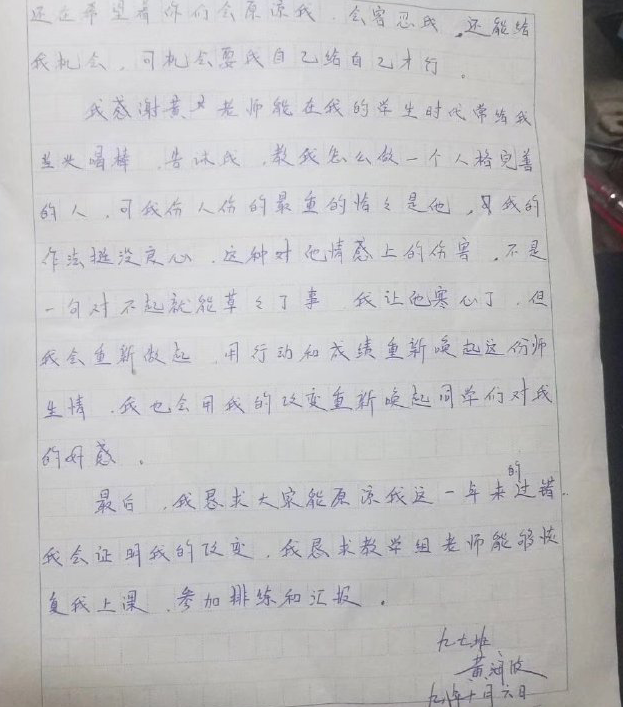 还在希望着你们会原谅我，会容忍我，还能给
我机会，可机会要我自己给自己才行。
我感谢黄 老师能在我的学生时代常给我
当头喝棒，告诉我，教我怎么做一个人格完善
的人，可我伤人伤的最重的恰々是他，我的
作法挺没良心，这种对他情感上的伤害，不是
一句对不起就能草々了事，我让他寒心了，但
我会重新做起，用行动和成绩重新唤起这份师
生情，我也会用我的改变重新唤起同学们对我
的好感。
最后，我恳求大家能原谅我这一年来的过错，
我会证明我的改变，我恳求教学组老师能够恢
复我上课，参加排练和汇报。
九七班
黄
九八年十月六日